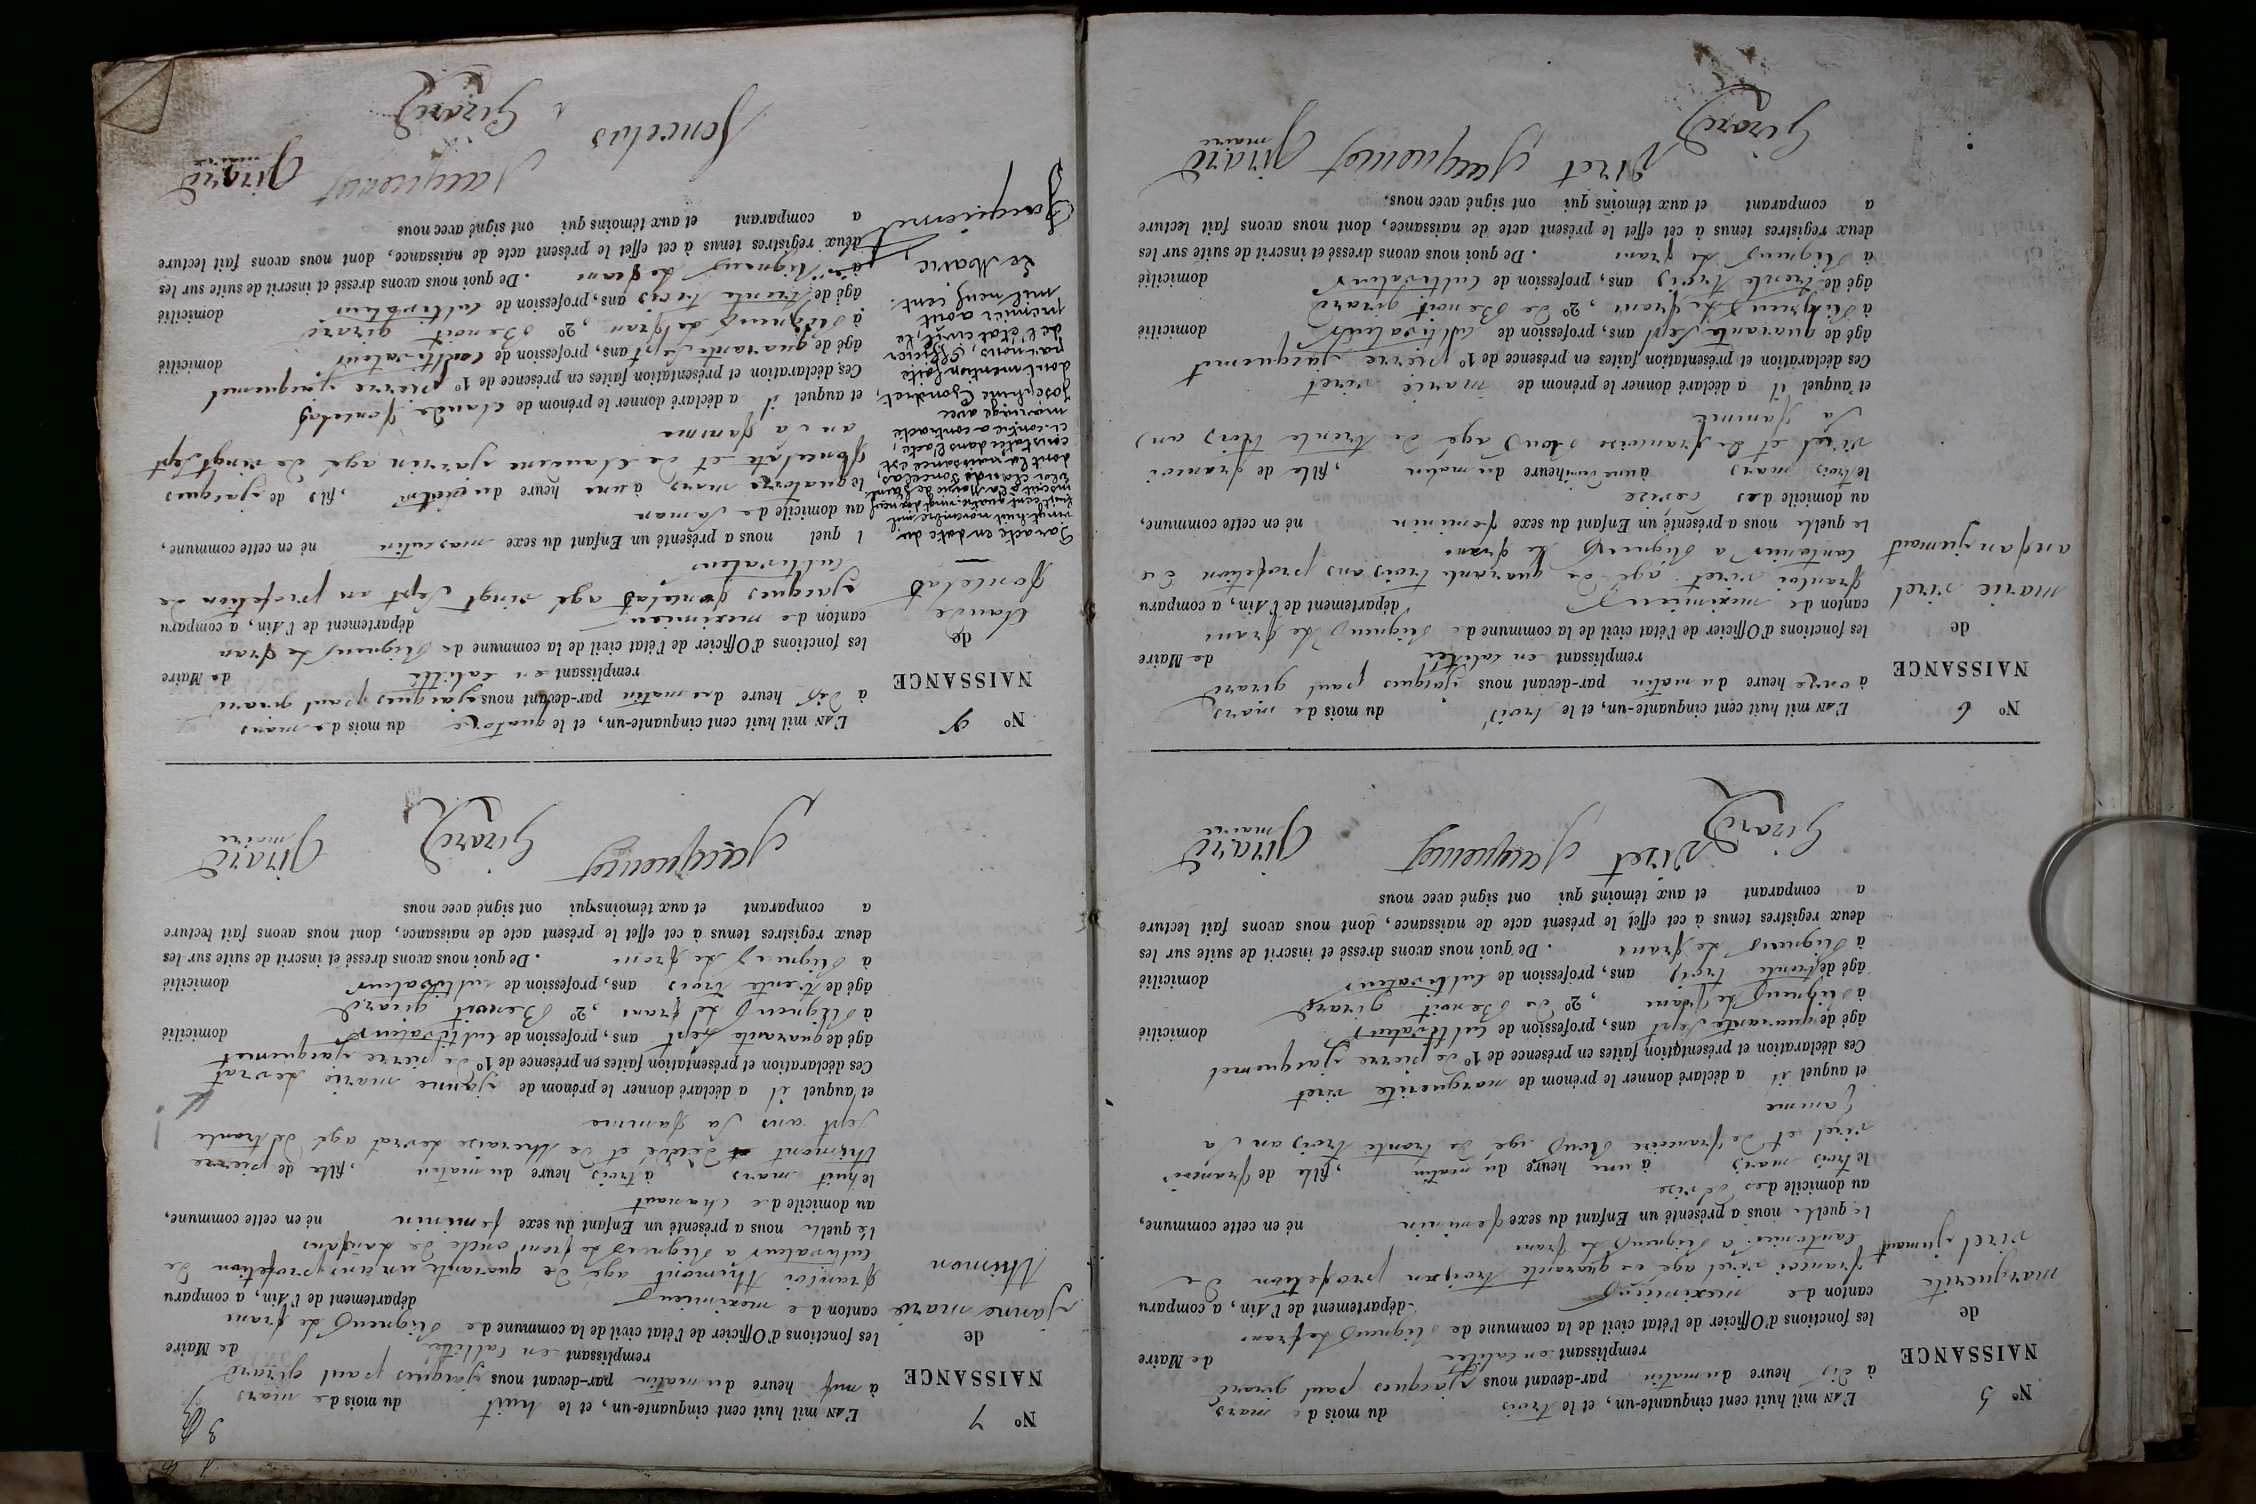 N° 5
NAISSANCE
de
marguerite
viret jumaut
L'AN mil huit cent cinquante-un, et le trois du mois de mars
à dis heure du matin par-devant nous jacques paul girard
remplissant en calitée de Maire
les fonctions d'Officier de l'état civil de la commune de Rignieus le franc
canton de meximieus département de l'Ain, a comparu
francoi viret agé de quarante troisan profetion de
Cantonier a Rignieus le franc
le quelle nous a présenté un Enfant du sexe feminin né en cette commune,
au domicile des
le trois mars à une heure du matin, fille de francoi
viret et de francoise Roux agé de trante trois an sa
famme
et auquel il a déclaré donner le prénom de marguerite viret
Ces déclaration et présentation faites en présence de 1° de pierre jacquemet
âgé de quarante sept ans, profession de Cultivateur domicilié
à Rignieus le franc, 2° de Benoit girard
âgé de trante trois ans, profession de Cultivateur domicilié
à Rignieus le franc. De quoi nous avons dressé et inscrit de suite sur les
deux registres tenus à cet effet le présent acte de naissance, dont nous avons fait lecture
a comparant et aux témoins qui ont signé avec nous
Viret Jacquemet Girard
maire
Girard
N° 6
NAISSANCE
de
marie viret
anfan jumaut
L'AN mil huit cent cinquante-un, et le trois du mois de mars
à onze heure du matin par-devant nous jacques paul girard
remplissant en calitée de Maire
les fonctions d'Officier de l'état civil de la commune de Rignieus le franc
canton de meximieus département de l'Ain, a comparu
francoi viret agé de quarante trois ans profetion de
Cantonier a Rignieus le franc
le quelle nous a présenté un Enfant du sexe feminin né en cette commune,
au domicile des
le trois mars à une heure du matin, fille de francoi
viret et de francoise Roux agé de trente trois an
sa famme
et auquel il a déclaré donner le prénom de marie viret
Ces déclaration et présentation faites en présence de 1° pierre jacquemet
âgé de quarante sept ans, profession de Cultivateur domicilié
à Rignieus le franc, 2° de Benoit girard
âgé de trente trois ans, profession de Cultivateur domicilié
à Rignieus le franc. De quoi nous avons dressé et inscrit de suite sur les
deux registres tenus à cet effet le présent acte de naissance, dont nous avons fait lecture
a comparant et aux témoins qui ont signé avec nous.
Viret Jacquemet Girard
maire
Girard
N° 7
NAISSANCE
de
janne marie
thimon
L'AN mil huit cent cinquante-un, et le huit du mois de mars
à neuf heure du matin par-devant nous jacques paul girard
remplissant en calitée de Maire
les fonctions d'Officier de l'état civil de la commune de Rignieus le franc
canton de meximieus département de l'Ain, a comparu
francoi thimont agé de quarante un ans profetion de
Cultivateur a Rignieus le franc oncle de lanfans
le quelle nous a présenté un Enfant du sexe feminin né en cette commune,
au domicile de chanaut
le huit mars à trois heure du matin, fille de pierre
thimont dédé et de theraise devrat agé de trante
sept ans sa famme
et auquel il a déclaré donner le prénom de janne marie devrat
Ces déclaration et présentation faites en présence de 1° de pierre jacquemet
âgé de quarante sept ans, profession de Cultivateur domicilié
à Rignieus le franc, 2° Benoit girard
âgé de trente trois ans, profession de cultivateur domicilié
à Rignieus le franc. De quoi nous avons dressé et inscrit de suite sur les
deux registres tenus à cet effet le présent acte de naissance, dont nous avons fait lecture
a comparant et aux témoins qui ont signé avec nous
Jacquemet Girard Girard
maire
N° 8
NAISSANCE
de
Claude
foncelas
L'AN mil huit cent cinquante-un, et le quatorze du mois de mars
à dis heure du matin par-devant nous jacques paul girard
remplissant en calitté de Maire
les fonctions d'Officier de l'état civil de la commune de Rignieus le fran
canton de meximieu département de l'Ain, a comparu
jacques foncelas agé vingt sept an profetion de
Cultivateur
l quel nous a présenté un Enfant du sexe masculin né en cette commune,
au domicile de Saman
le quatorze mars à une heure du matin, fils de jacques
foncelas et de Claudine jarrin agé de vingt sept
an sa famme
et auquel il a déclaré donner le prénom de Claude foncelas
Ces déclaration et présentation faites en présence de 1° pierre jacquemet
âgé de quarante sept ans, profession de Cultivateur domicilié
à Rignieus le fran, 2° Benoit girard
âgé de trente trois ans, profession de Cultivateur domicilié
à Rignieus le franc. De quoi nous avons dressé et inscrit de suite sur les
deux registres tenus à cet effet le présent acte de naissance, dont nous avons fait lecture
a comparant et aux témoins qui ont signé avec nous
Jacquemet Girard
maire
foncelas Girard
Par acte en date du
vingt-huit novembre mil
huit cent quatre vingt dix neuf
inscrit à la Mairie de
Claude Foncelas,
dont la naissance est
constatée dans l'acte
ci-contre a contracté
mariage avec
Joséphine Gondret,
dont mention faite
par nous, Officier
de l'état civil le
premier août
mil neuf cent.
Le Maire,
Jacquemet